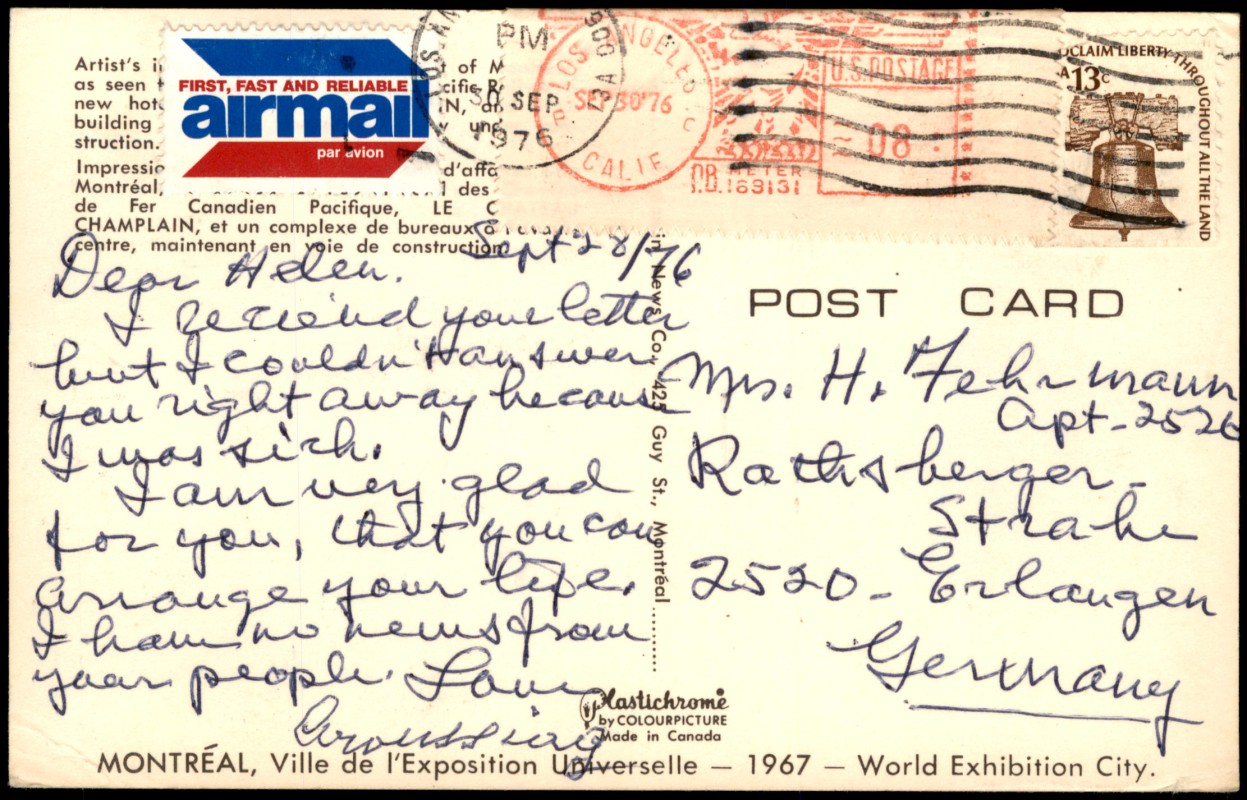 Artist's i of M
as seen cific R
new hot N, a
building un
struction.
Impressio d'affa
Montréal, l des
de Fer Canadien Pacifique, LE C
CHAMPLAIN, et un complexe de bureaux
centre, maintenant en voie de construction
FIRST, FAST AND RELIABLE
airmail
par avion
PM
30 SEP
1976
LOS ANGELES
SEP 30'76
CALIF
U.S. POSTAGE
08
P.B. METER
169131
OCLAIM LIBERTY THROUGHOUT ALL THE LAND
A 13c
Sept 28/76
Dear Helen.
I reciend your letter
but I couldn't answer
you right away because
I was sick.
I am very glad
for you, that you can
arrange your life.
I have no news from
your people. Love
News Co., 425 Guy St., Montréal
POST CARD
Mrs. H. Fehrmann
Apt-2526
Rathsberger-
Straße
2520- Erlangen
Germany
Plastichrome
by COLOURPICTURE
Made in Canada
MONTRÉAL, Ville de l'Exposition Universelle — 1967 — World Exhibition City.